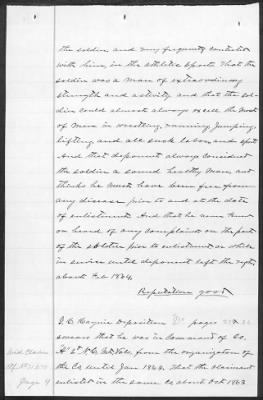 the soldier and very frequently contested
with him, in the athletic sports. That the
soldier was a man of extraordinary
strength and activity and that the sol-
dier could almost always excell the most
of men in wrestling, running, jumping,
lifting and all such labor and sport
And that deponent always considered
the soldier a sound healthy man, and
thinks he must have been free from
any disease prior to and at the date
of enlistment. And that he never knew
or heard of any complaint on the part
of the soldier prior to enlistment or while
in service until deponent left the regt.
about Feb 1864.
Reputation good
Deposition "D" pages
swears that he was in command of Co.
from the organization of
the Co until Jan 1864. That the claimant
enlisted in the same Co about Oct 1863
Page 4